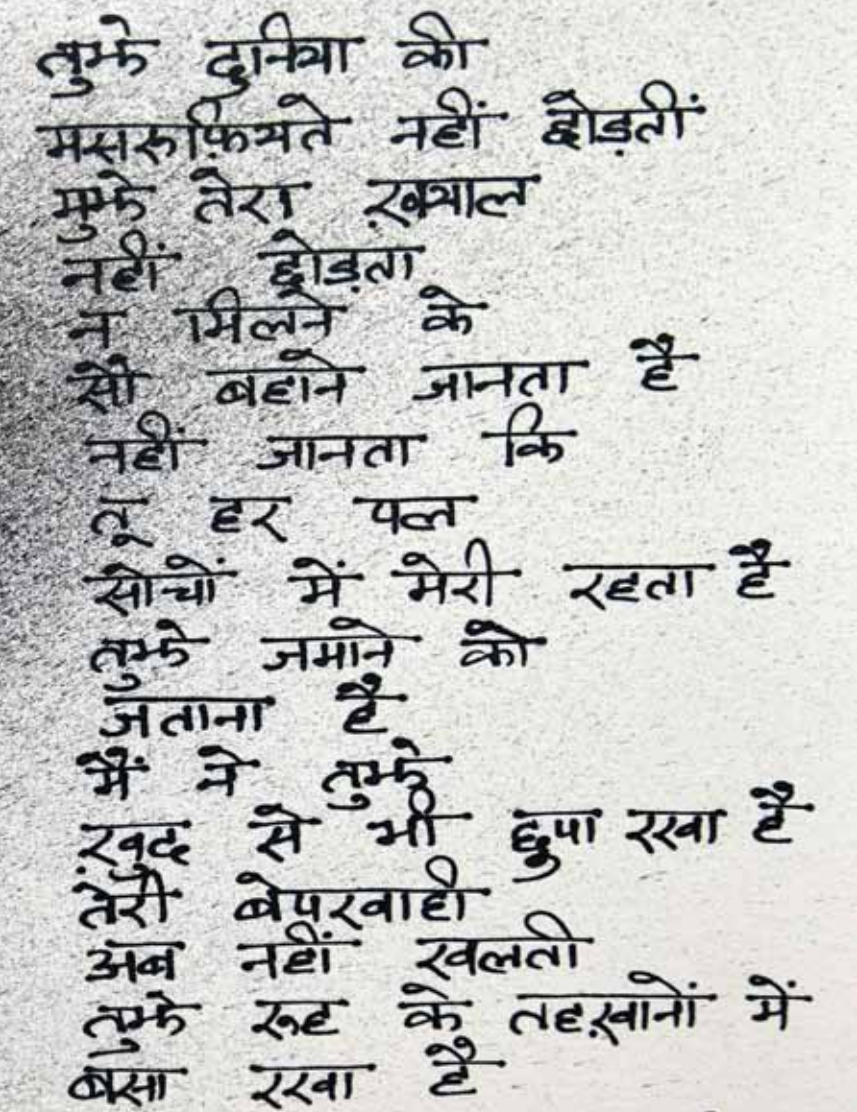 तुझे दुनिया की
मसरूफ़ियते नहीं छोड़तीं
मुझे तेरा ख़्याल
नहीं छोड़ता
न मिलने के
सौ बहाने जानता है
नहीं जानता कि
तू हर पल
सोचों में मेरी रहता है
तुझे जमाने को
जताना है
मैं ने तुझे
ख़ुद से भी छुपा रखा है
तेरी बेपरवाही
अब नहीं खलती
तुझे रूह के तहख़ानों में
बसा रखा है